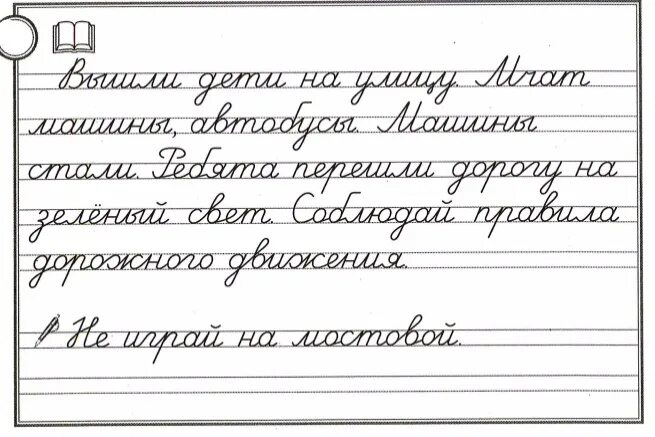 Вышли дети на улицу. Мчат
машины, автобусы. Машины
стали. Ребята перешли дорогу на
зелёный свет. Соблюдай правила
дорожного движения.
Не играй на мостовой.